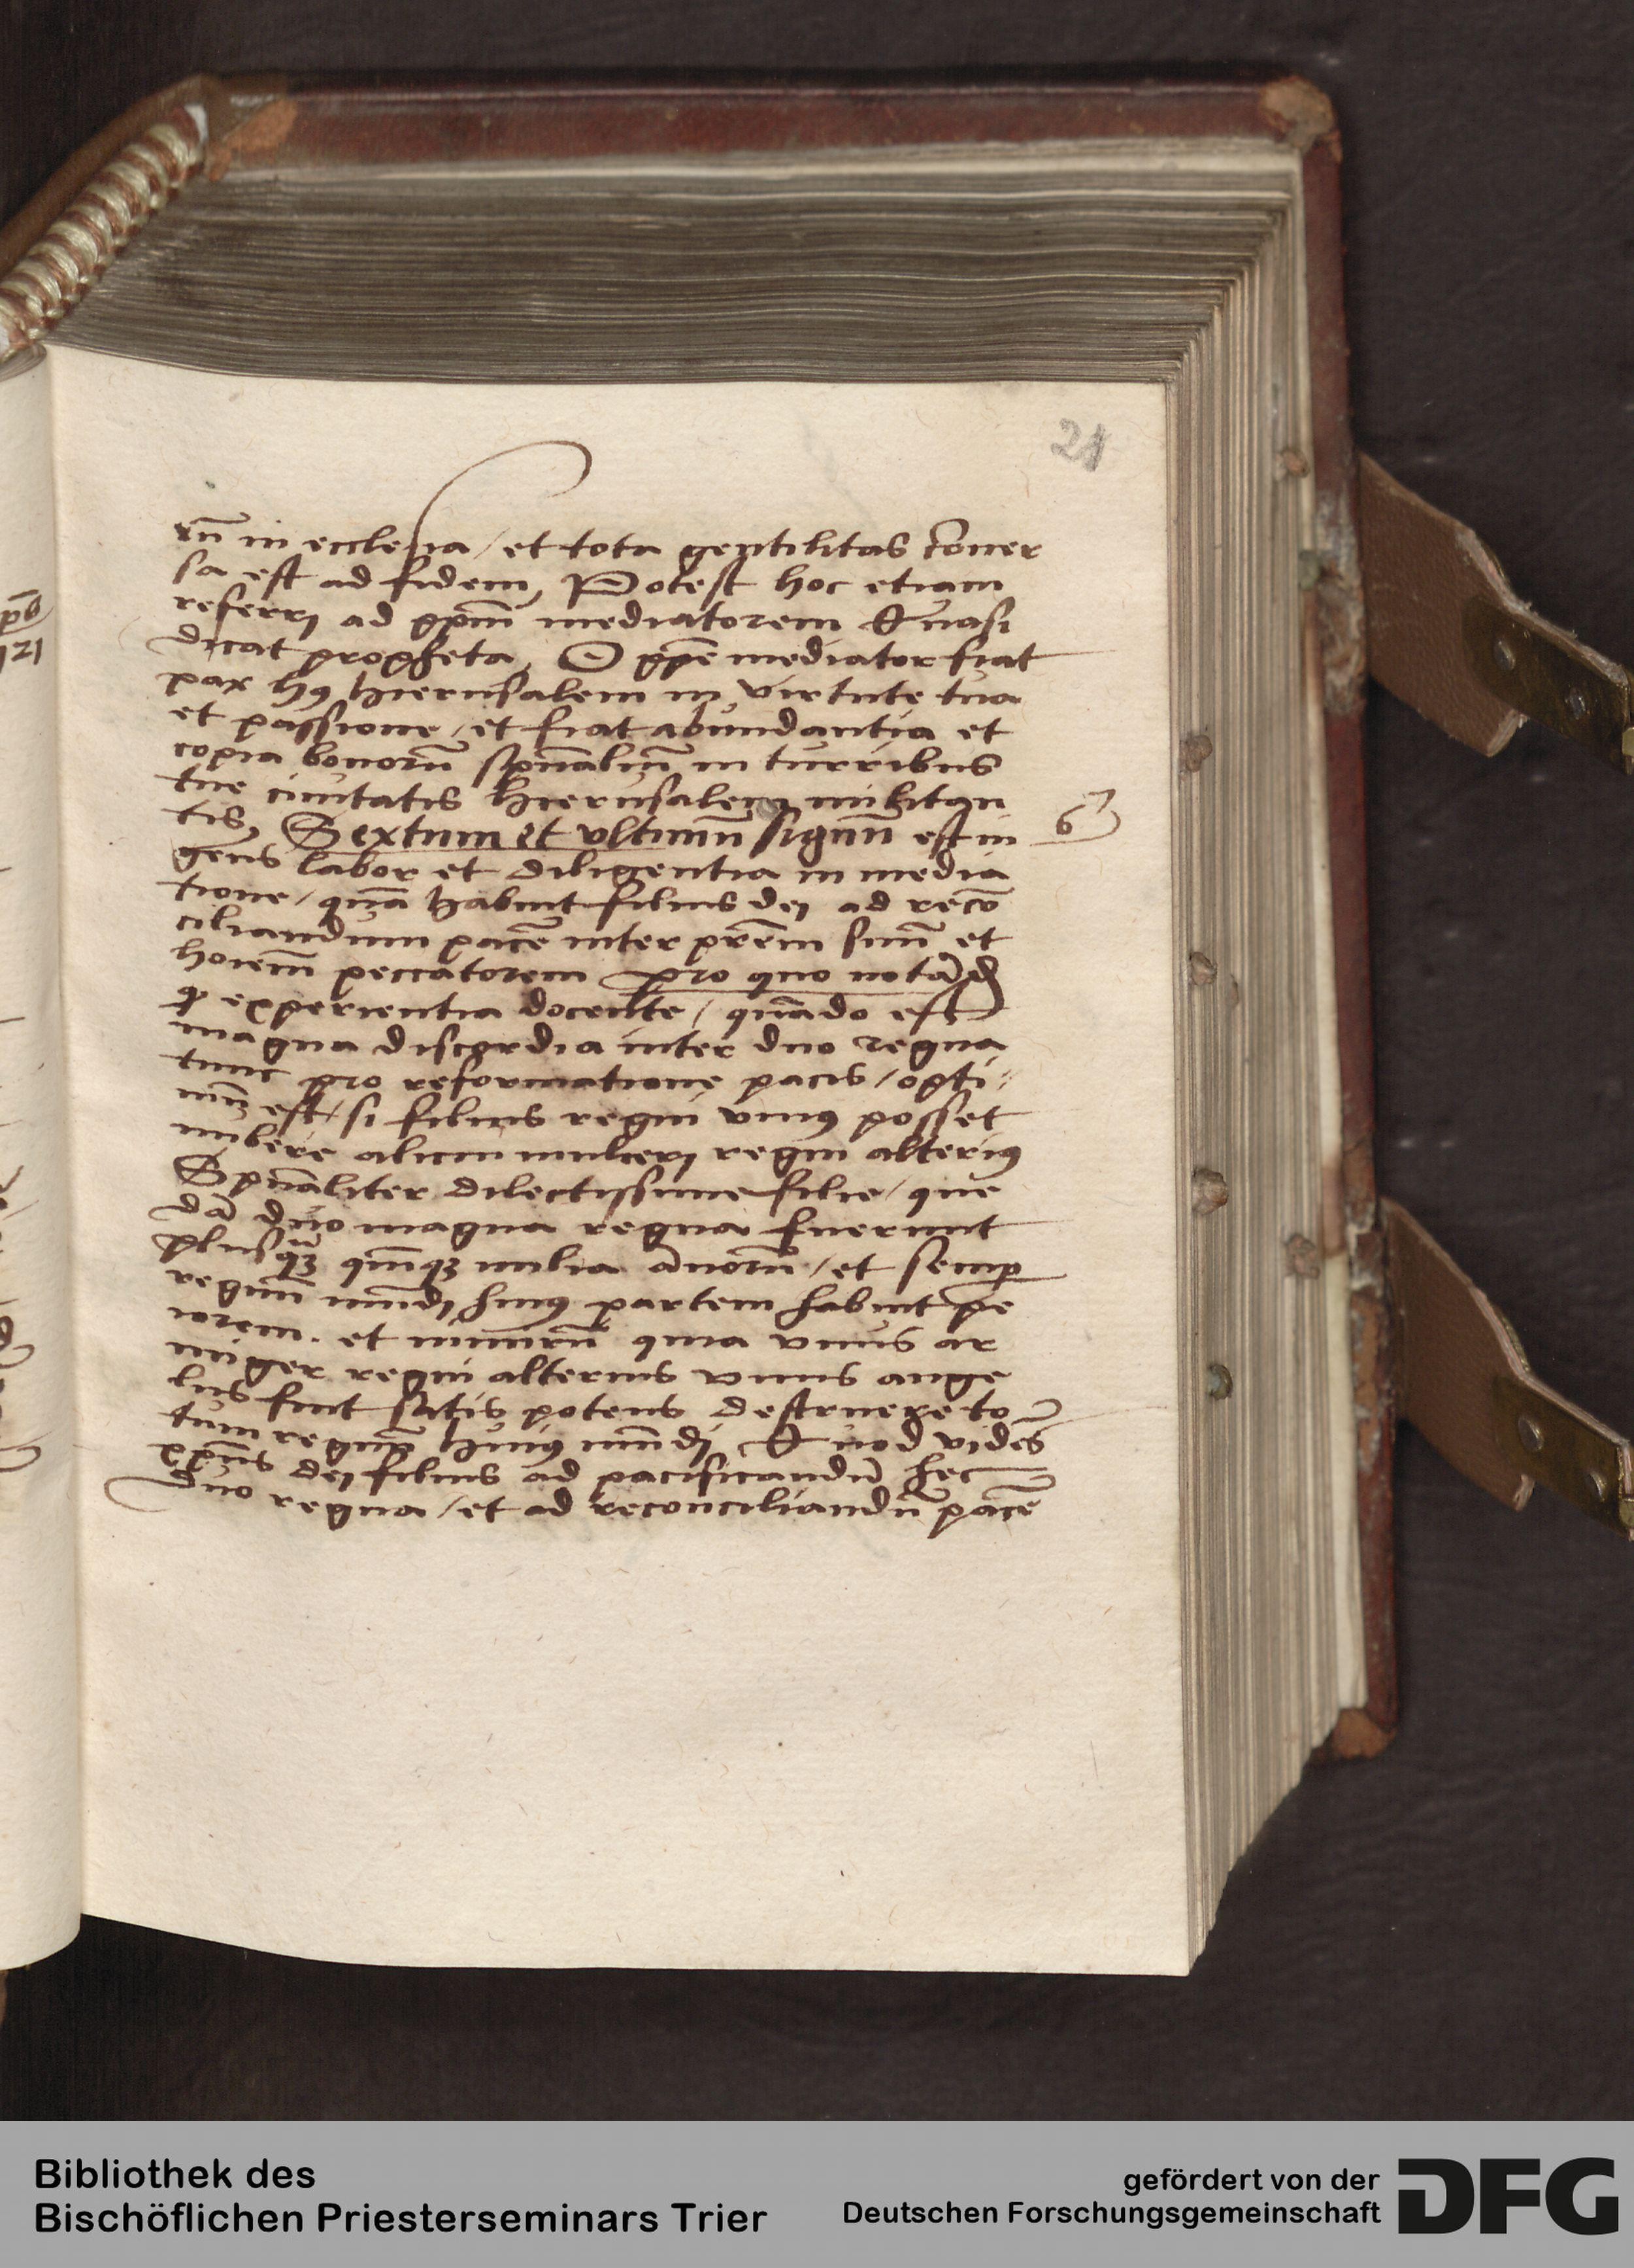 21
rū in ecclesia / et tota gentilitas cōuer
sa est ad fidem, Potest hoc etiam
referrj ad xpm̄ mediatorem Quasi
dicat propheta, O xpē mediator fiat
pax hꝰ hierusalem in virtute tua
et passione / et fiat abundantia et
copia bonorū spūaliū in turribus
tue ciuitatis hierusalem militan
tis, Sextum et vltimū signū est in
6
gens labor et diligentia in media
tione / quā habuit filius dej ad recō
ciliandum pacē inter prēm suū et
hoiem̄ peccatorem pro quo notād
ꝙ experientia docente / quādo est
magna discordia inter duo regna
tunc pro reformatione pacis / opti
mū est / si filius regni vniꝰ posset
nubere alicui mulierj regni alteriꝰ
Spūaliter dilectissime filie / que
dā duo magna regna fuerunt
plusꝙ̄ quīqꝫ milia annorū / et semp
regnū mūdj huiꝰ partem habuit pe
iorem. et nimirū quia vnus ar
miger regni alterius vnus ange
lus fuit satis potens destruere to
tum regnū huiꝰ mūdj Quod vidēs
xpūs dej filius ad pacificandū hec
duo regna / et ad reconciliandū pacē
pō
121
Bibliothek des
Bischöflichen Priesterseminars Trier
gefördert von der
Deutschen Forschungsgemeinschaft
DFG